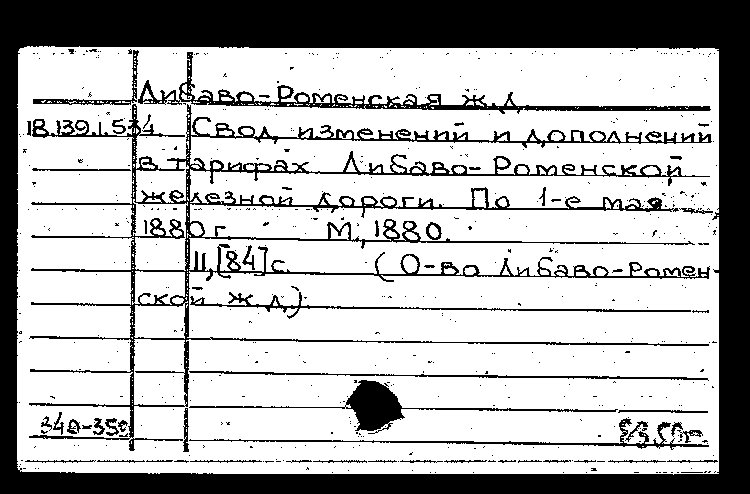 Либаво-Роменская ж.д.
18.139.1.534. Свод изменений и дополнений
в тарифах Либаво-Роменской
железной дороги. По 1-е мая
1880 г. М., 1880.
II, [84] с. (О-во Либаво-Ромен-
ской ж.д.)
340-350